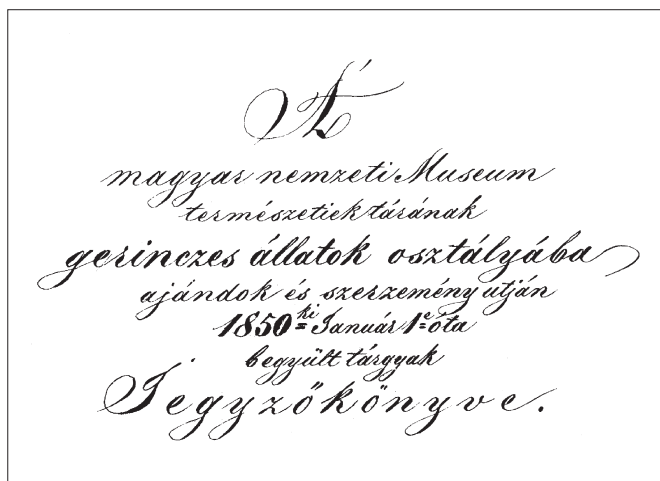 A'
magyar nemzeti Museum
természetiek tárának
gerinczes állatok osztályába
ajándok és szerzemény utján
1850=ki Január 1=e óta
begyült tárgyak
Jegyzőkönyve.